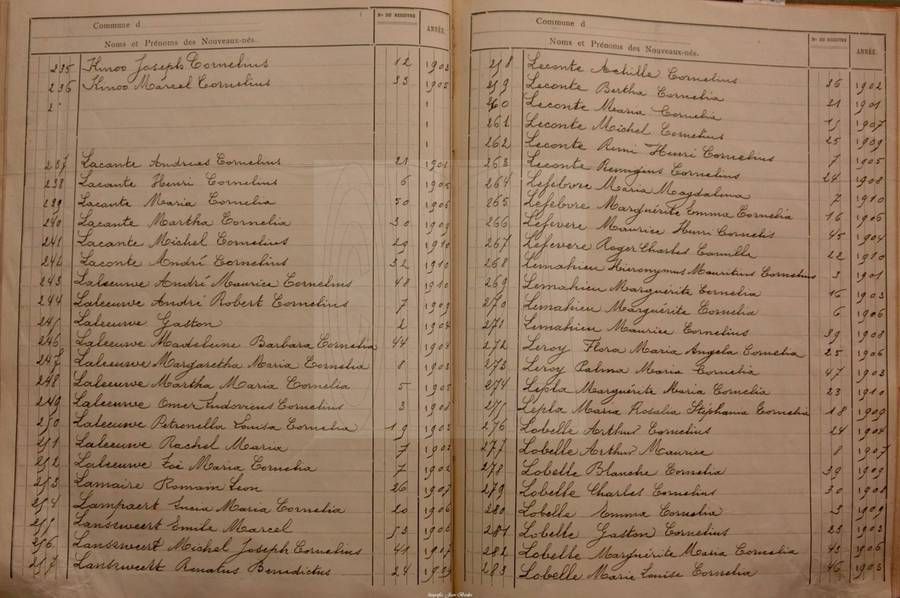 Commune d
Nos DU REGISTRE
ANNÉE.
Noms et Prénoms des Nouveaux-nés.
235 Kinoo Joseph Cornelius 12 1903
236 Kinoo Marcel Cornelius 33 1905
237 Lacante Andreas Cornelius 21 1901
238 Lacante Henri Cornelius 6 1905
239 Lacante Maria Cornelia 50 1906
240 Lacante Martha Cornelia 30 1909
241 Lacante Michel Cornelius 29 1910
242 Laconte André Cornelius 32 1910
243 Laleeuwe André Maurice Cornelius 48 1910
244 Laleeuwe André Robert Cornelius 7 1909
245 Laleeuwe Gaston 2 1904
246 Laleeuwe Madeleine Barbara Cornelia 44 1904
247 Laleeuwe Margaretha Maria Cornelia 8 1903
248 Laleeuwe Martha Maria Cornelia 5 1905
249 Laleeuwe Omer Ludovicus Cornelius 3 1908
250 Laleeuwe Petronella Louisa Cornelia 19 1902
251 Laleeuwe Rachel Maria 7 1902
252 Laleeuwe Zoë Maria Cornelia 7 1902
253 Lamaire Romain Leon 26 1907
254 Lampaert Lucia Maria Cornelia 20 1906
255 Lansweert Emile Marcel 53 1906
256 Lansweert Michel Joseph Cornelius 41 1907
257 Lansweert Renatus Benedictus 24 1909
Commune d
Nos DU REGISTRE
ANNÉE.
Noms et Prénoms des Nouveaux-nés.
258 Leconte Achille Cornelius 36 1902
259 Leconte Bertha Cornelia 21 1901
260 Leconte Maria Cornelia 15 1907
261 Leconte Michel Cornelius 25 1909
262 Leconte Remi Henri Cornelius 7 1905
263 Leconte Remigius Cornelius 24 1908
264 Lefebvre Maria Magdalena 7 1910
265 Lefebvre Marguérite Emma Cornelia 16 1906
266 Lefevere Maurice Henri Cornelis 45 1904
267 Lefevere Roger Charles Camille 22 1910
268 Lemahieu Hieronymus Mauritius Cornelius 3 1901
269 Lemahieu Marguérite Cornelia 16 1903
270 Lemahieu Marguérite Cornelia 6 1906
271 Lemahieu Maurice Cornelius 39 1908
272 Leroy Flora Maria Angela Cornelia 25 1906
273 Leroy Palma Maria Cornelia 47 1903
274 Lepla Marguérite Maria Cornelia 23 1910
275 Lepla Maria Rosalia Stéphania Cornelia 18 1909
276 Lobelle Arthur Cornelius 24 1904
277 Lobelle Arthur Maurice 8 1907
278 Lobelle Blanche Cornelia 39 1909
279 Lobelle Charles Cornelius 30 1908
280 Lobelle Emma Cornelia 3 1909
281 Lobelle Gaston Cornelius 23 1903
282 Lobelle Marguérite Maria Cornelia 43 1906
283 Lobelle Marie Louise Cornelia 46 1903